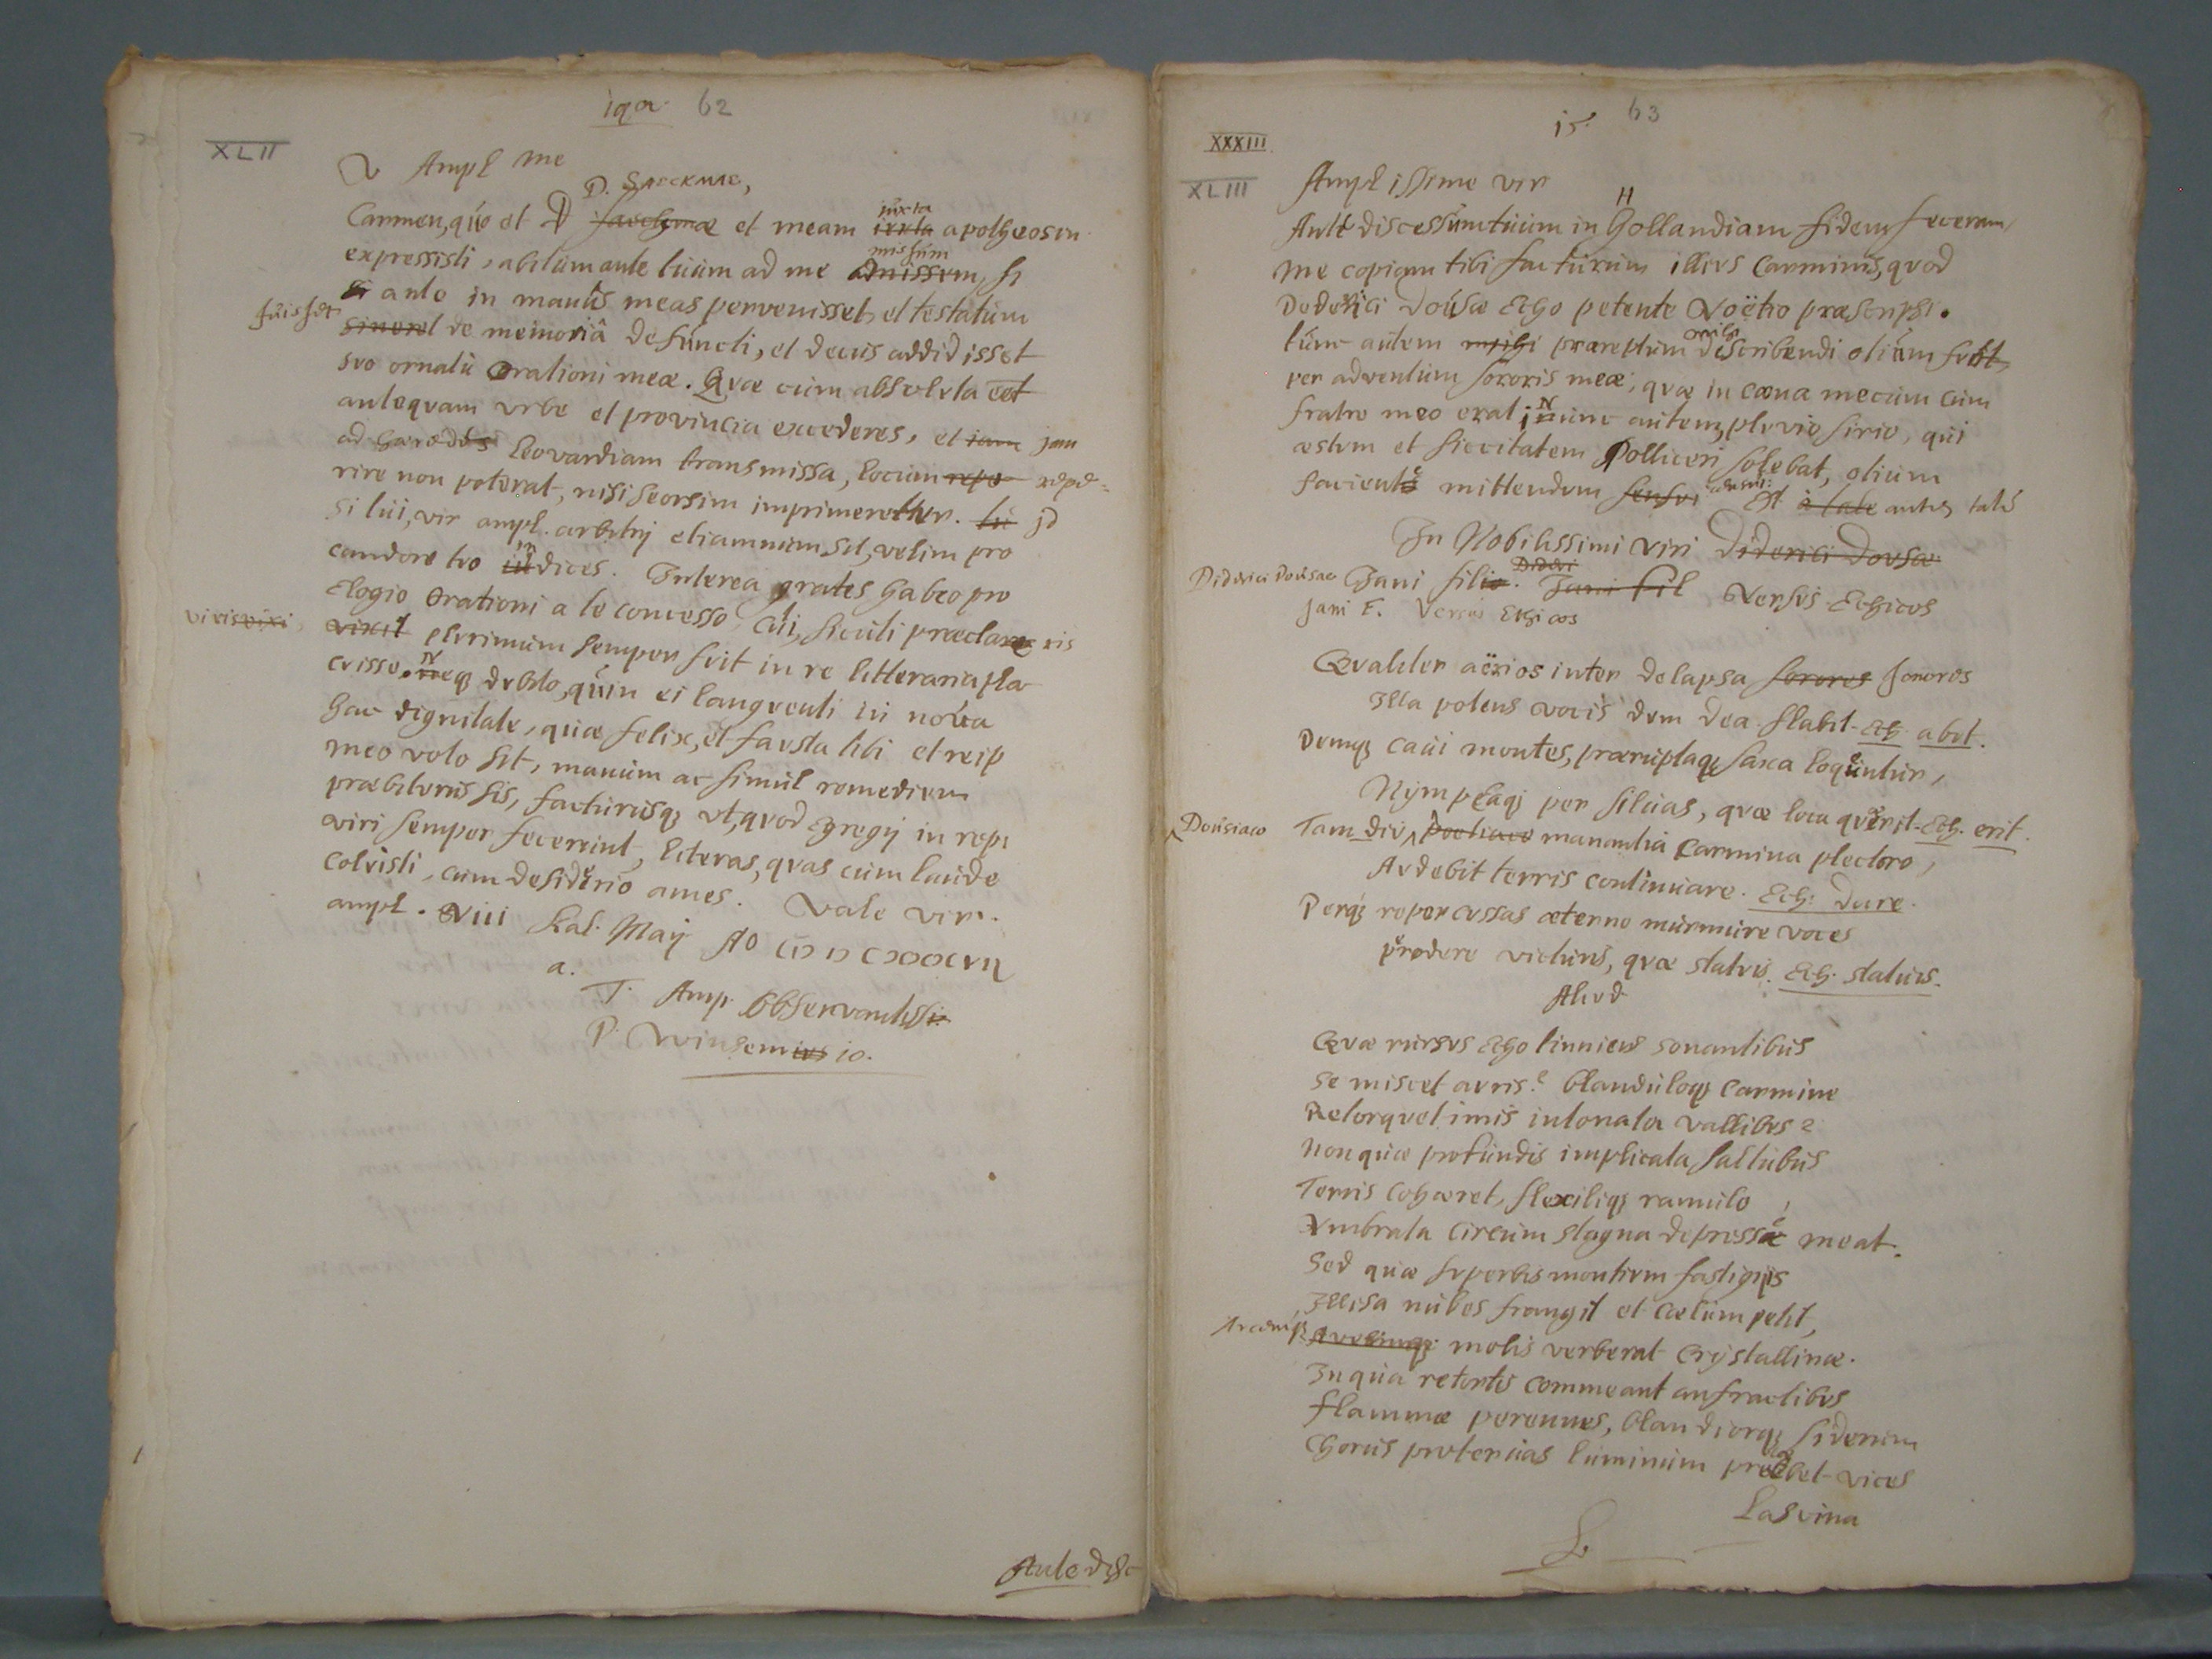 14a. 62
XLII
V Ampl me
D. Saeckmae,
Carmen, quo et D et meam iuxta apotheosin
expressisti, abitum ante tuum ad me missum, si
ante in manus meas pervenisset, et testatum
fuisset de memoriâ defuncti, et decus addidisset
suo ornatu orationi meæ. Quæ cum absoluta eet
antequam urbe et provincia excederes, et jam
ad Leovardiam transmissa, locum repe=
rire non poterat, nisi seorsim imprimeretur. jd
si tui, vir ampl. arbitrij etiamnum sit, velim pro
candore tuo indices. Interea grates habeo pro
Elogio Orationi a te concesso, cui, sicuti præclaris
viris plurimum semper fuit in re litteraria pla
cuisse. Neq dubito, quin ei languenti in nova
hac dignitate, quæ felix, et fausta tibi et reip
meo voto sit, manum ac simul remedium
præbiturus sis, facturusq ut, quod Egregij in rep
viri semper fecerunt, literas, quas cum laude
coluisti, cum desiderio ames. Vale vir
ampl. VIII Kal. Maij A°
a.
T. Amp. Observantiss
P. Winsemius
Ante disc
15. 63
XXXIII.
XLIII
Amplissime vir
Ante discessum tuum in Hollandiam fidem feceram,
me copiam tibi facturum illius Carminis, quod
Dederici Dousæ Echo petente Voëtio præscripsi.
tunc autem præreptum mihi describendi otium fuit
per adventum sororis meæ, quæ in cœna mecum cum
fratre meo erat; Nunc autem, pluvio sirio, qui
æstum et siccitatem Polliceri solebat, otium
faciente mittendum censui: Est autem tale
In Nobilissimi viri
Diderici Dousae Jani fili. Versus Echicos
Jani F. Versus Echicos
Qualiter aërios inter delapsa sonoros
Illa potens vocis dum dea stabit. Ech abit.
Dumq cavi montes, præruptaq saxa loquentur,
Nymphaq per silvas, quæ loca quærit. Ech. erit.
Tam diu Dousiaco manantia Carmina plectro,
Audebit terris continuare. Ech: Dure.
Perq repercussas æterno murmure voces
Prodere victuris, quæ statuis. Ech. statuis.
Aliud
Quæ rursus Echo tinniens sonantibus
Se miscet auris? blanduloq carmine
Retorquet imis intonata vallibus?
Non quæ profundis implicata saltubus
Terris cohæret, flexiliq ramulo
Umbrata circum stagna depresse meat.
Sed quæ superbis montium fastigijs
Illisa nubes frangit et cœlum petit,
Arcemq molis verberat Crystallinæ.
In qua retortis commeant anfractibus
Flammæ perennes, blandiorq siderum
Chorus protervas luminum præbet vices
Lasvina